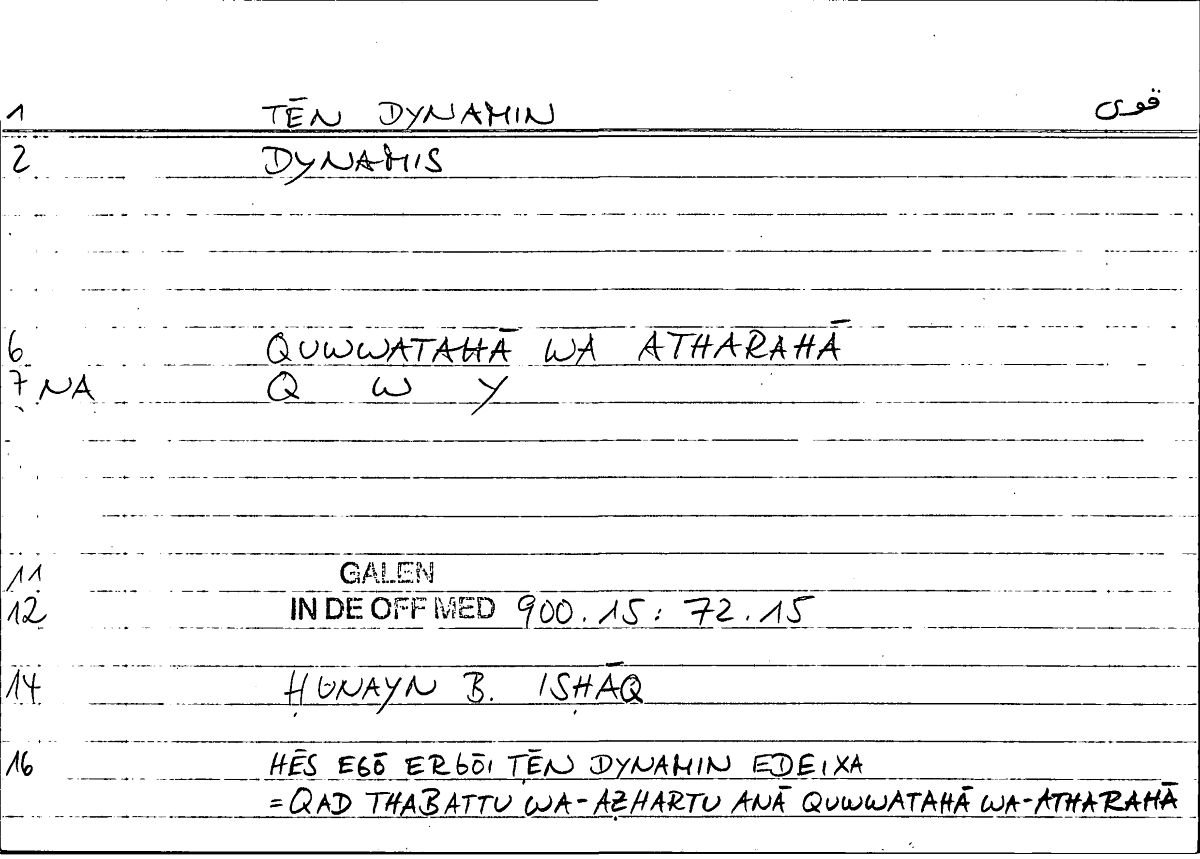 1 TĒN DYNAMIN قوى
2 DYNAMIS
6 QUWWATAHĀ WA ATHARAHĀ
7 NA Q W Y
11 GALEN
12 IN DE OFF MED 900.15: 72.15
14 ḤUNAYN B. ISḤĀQ
16 HĒS EGŌ ERGŌI TĒN DYNAMIN EDEIXA
= QAD THABATTU WA-AẒHARTU ANĀ QUWWATAHĀ WA-ATHARAHĀ